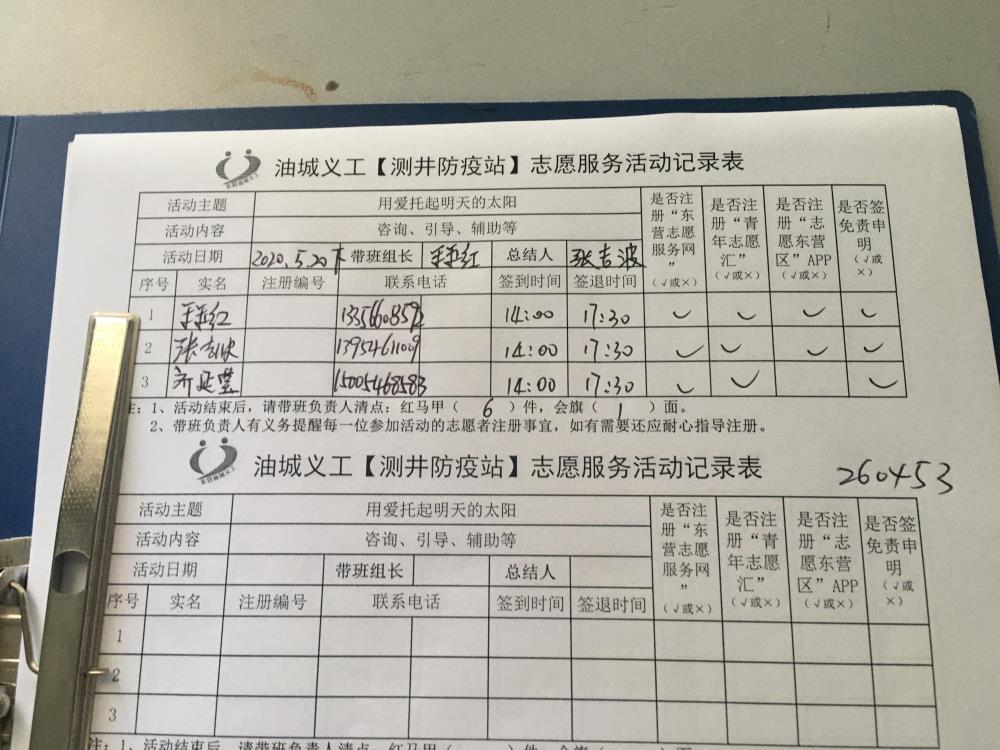 油城义工【测井防疫站】志愿服务活动记录表
活动主题 用爱托起明天的太阳 是否注册“东营志愿服务网”(√或×) 是否注册“青年志愿汇”(√或×) 是否注册“志愿东营区”APP(√或×) 是否签免责申明(√或×)
活动内容 咨询、引导、辅助等
活动日期 2020.5.20下 带班组长 总结人 张吉波
序号 实名 注册编号 联系电话 签到时间 签退时间
1 14:00 17:30 √ √ √ √
2 张吉波 13954611009 14:00 17:30 √ √ √ √
3 15005468583 14:00 17:30 √ √ √
注：1、活动结束后，请带班负责人清点：红马甲（ 6 ）件，会旗（ 1 ）面。
2、带班负责人有义务提醒每一位参加活动的志愿者注册事宜，如有需要还应耐心指导注册。
油城义工【测井防疫站】志愿服务活动记录表 260453
活动主题 用爱托起明天的太阳 是否注册“东营志愿服务网”(√或×) 是否注册“青年志愿汇”(√或×) 是否注册“志愿东营区”APP(√或×) 是否签免责申明(√或×)
活动内容 咨询、引导、辅助等
活动日期 带班组长 总结人
序号 实名 注册编号 联系电话 签到时间 签退时间
1
2
3
注：1、活动结束后，请带班负责人清点：红马甲（ ）件，会旗（ ）面。